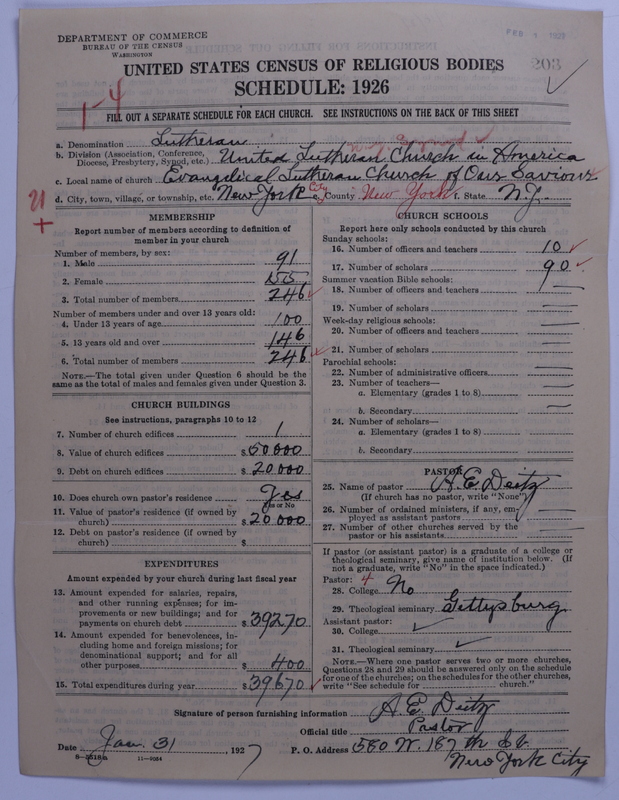 DEPARTMENT OF COMMERCE
BUREAU OF THE CENSUS
WASHINGTON
FEB 1 1927
203
UNITED STATES CENSUS OF RELIGIOUS BODIES
SCHEDULE: 1926
1-4
FILL OUT A SEPARATE SCHEDULE FOR EACH CHURCH. SEE INSTRUCTIONS ON THE BACK OF THIS SHEET
a. Denomination Lutheran
b. Division (Association, Conference, Diocese, Presbytery, Synod, etc.) United Lutheran Church in America
c. Local name of church Evangelical Lutheran Church of Our Saviour
d. City, town, village, or township, etc. New York City e. County New York f. State N.Y.
21
+
MEMBERSHIP
Report number of members according to definition of
member in your church
Number of members, by sex:
1. Male 91
2. Female 155
3. Total number of members 246
Number of members under and over 13 years old:
4. Under 13 years of age 100
5. 13 years old and over 146
6. Total number of members 246
NOTE.—The total given under Question 6 should be the
same as the total of males and females given under Question 3.
CHURCH BUILDINGS
See instructions, paragraphs 10 to 12
7. Number of church edifices 1
8. Value of church edifices $50000
9. Debt on church edifices $20000
10. Does church own pastor's residence Yes
Yes or No
11. Value of pastor's residence (if owned by
church) $20000
12. Debt on pastor's residence (if owned by
church) $
EXPENDITURES
Amount expended by your church during last fiscal year
13. Amount expended for salaries, repairs,
and other running expenses; for im-
provements or new buildings; and for
payments on church debt $39270
14. Amount expended for benevolences, in-
cluding home and foreign missions; for
denominational support; and for all
other purposes $400
15. Total expenditures during year $39670
CHURCH SCHOOLS
Report here only schools conducted by this church
Sunday schools:
16. Number of officers and teachers 10
17. Number of scholars 90
Summer vacation Bible schools:
18. Number of officers and teachers —
19. Number of scholars —
Week-day religious schools:
20. Number of officers and teachers —
21. Number of scholars —
Parochial schools:
22. Number of administrative officers —
23. Number of teachers—
a. Elementary (grades 1 to 8) —
b. Secondary —
24. Number of scholars—
a. Elementary (grades 1 to 8) —
b. Secondary
PASTOR
25. Name of pastor A. E. Deitz
(If church has no pastor, write "None")
26. Number of ordained ministers, if any, em-
ployed as assistant pastors —
27. Number of other churches served by the
pastor or his assistants —
If pastor (or assistant pastor) is a graduate of a college or
theological seminary, give name of institution below. (If
not a graduate, write "No" in the space indicated.)
Pastor: 4
28. College No
29. Theological seminary Gettysburg
Assistant pastor:
30. College
31. Theological seminary
NOTE.—Where one pastor serves two or more churches,
Questions 28 and 29 should be answered only on the schedule
for one of the churches; on the schedules for the other churches,
write "See schedule for church."
Signature of person furnishing information A. E. Deitz
Official title Pastor
Date Jan. 31, 1927 P. O. Address 580 W. 187th St.
New York City
8—3518a 11—9064